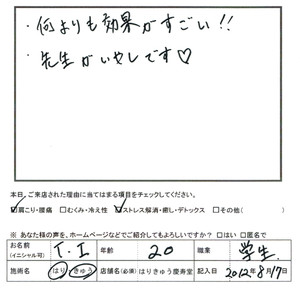 ・何よりも効果がすごい!!
・先生がいやしです♡
本日、ご来店された理由に当てはまる項目をチェックしてください。
☑肩こり・腰痛 □むくみ・冷え性 ☑ストレス解消・癒し・デトックス □その他( )
※ あなた様の声を、ホームページなどでご紹介してもよろしいですか? □はい □匿名で
お名前(イニシャル可) T.I 年齢 20 職業 学生
施術名 はり きゅう 店舗名(必須) はりきゅう慶寿堂 記入日 2012年8月17日